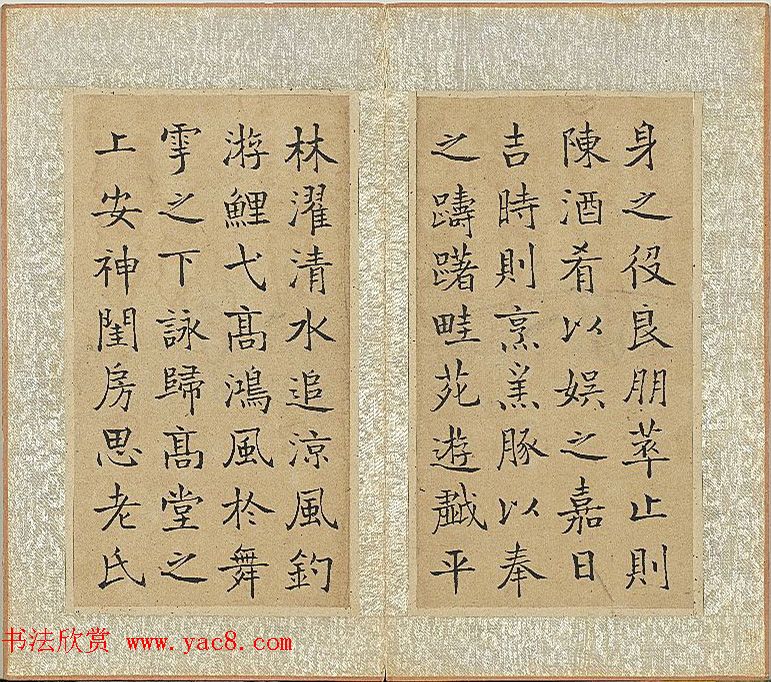 身之役良朋萃止則
陳酒肴以娱之嘉日
吉時則烹羔豚以奉
之躊躇畦苑遊戲平
林濯清水追涼風釣
游鯉弋髙鴻風於舞
雩之下詠歸髙堂之
上安神閨房思老氏
书法欣赏 www.yac8.com